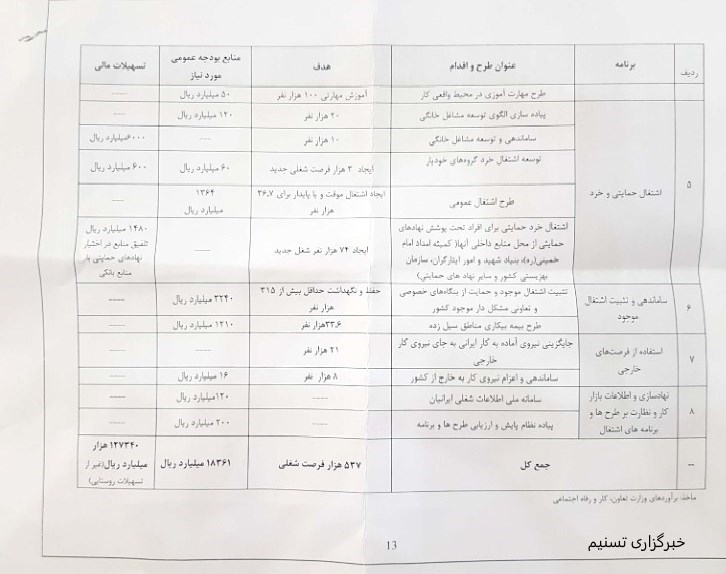 ردیف	برنامه	عنوان طرح و اقدام	هدف	منابع بودجه عمومی مورد نیاز	تسهیلات مالی
طرح مهارت آموزی در محیط واقعی کار	آموزش مهارتی ۱۰۰ هزار نفر	۵۰ میلیارد ریال	-----
۵	اشتغال حمایتی و خرد	پیاده سازی الگوی توسعه مشاغل خانگی	۲۰ هزار نفر	۱۲۰ میلیارد ریال	-----
ساماندهی و توسعه مشاغل خانگی	۱۰ هزار نفر	----	۶۰۰۰میلیارد ریال
توسعه اشتغال خرد گروه‌های خودیار	ایجاد ۳ هزار فرصت شغلی جدید	۶۰ میلیارد ریال	۶۰۰ میلیارد ریال
طرح اشتغال عمومی	ایجاد اشتغال موقت و یا پایدار برای ۳۶.۷ هزار نفر	۱۳۶۴ میلیارد ریال	----
اشتغال خرد حمایتی برای افراد تحت پوشش نهادهای
حمایتی از محل منابع داخلی آنها( کمیته امداد امام
خمینی(ره)، بنیاد شهید و امور ایثارگران، سازمان
بهزیستی کشور و سایر نهاد های حمایتی)	ایجاد ۷۴ هزار نفر شغل جدید	-----	۱۴۸۰ میلیارد ریال
تلفیق منابع در اختیار
نهادهای حمایتی با
منابع بانکی
۶	ساماندهی و تثبیت اشتغال موجود	تثبیت اشتغال موجود و حمایت از بنگاه‌های خصوصی
و تعاونی مشکل دار موجود کشور	حفظ و نگهداشت حداقل بیش از ۳۱۵
هزار نفر	۲۲۴۰ میلیارد ریال	-----
طرح بیمه بیکاری مناطق سیل زده	۳۳.۶هزار نفر	۱۲۱۰ میلیارد ریال	-----
۷	استفاده از فرصت‌های خارجی	جایگزینی نیروی آماده به کار ایرانی به جای نیروی کار
خارجی	۲۱ هزار نفر	----	-----
ساماندهی و اعزام نیروی کار به خارج از کشور	۸ هزار نفر	۱۶ میلیارد ریال	-----
۸	نهادسازی و اطلاعات بازار
کار و نظارت بر طرح ها و
برنامه های اشتغال	سامانه ملی اطلاعات شغلی ایرانیان	-----	۱۲۰میلیارد ریال	-----
پیاده نظام پایش و ارزیابی طرح ها و برنامه	-----	۲۰۰ میلیارد ریال	-----
--	جمع کل	۵۳۷ هزار فرصت شغلی	۱۸۳۶۱ میلیارد ریال	۱۲۷۳۴۰ هزار
میلیارد ریال(غیر از
تسهیلات روستایی)
ماخذ: برآوردهای وزارت تعاون، کار و رفاه اجتماعی
13
خبرگزاری تسنیم